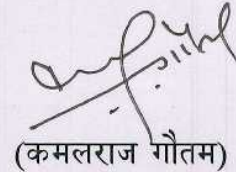 (कमलराज गौतम)